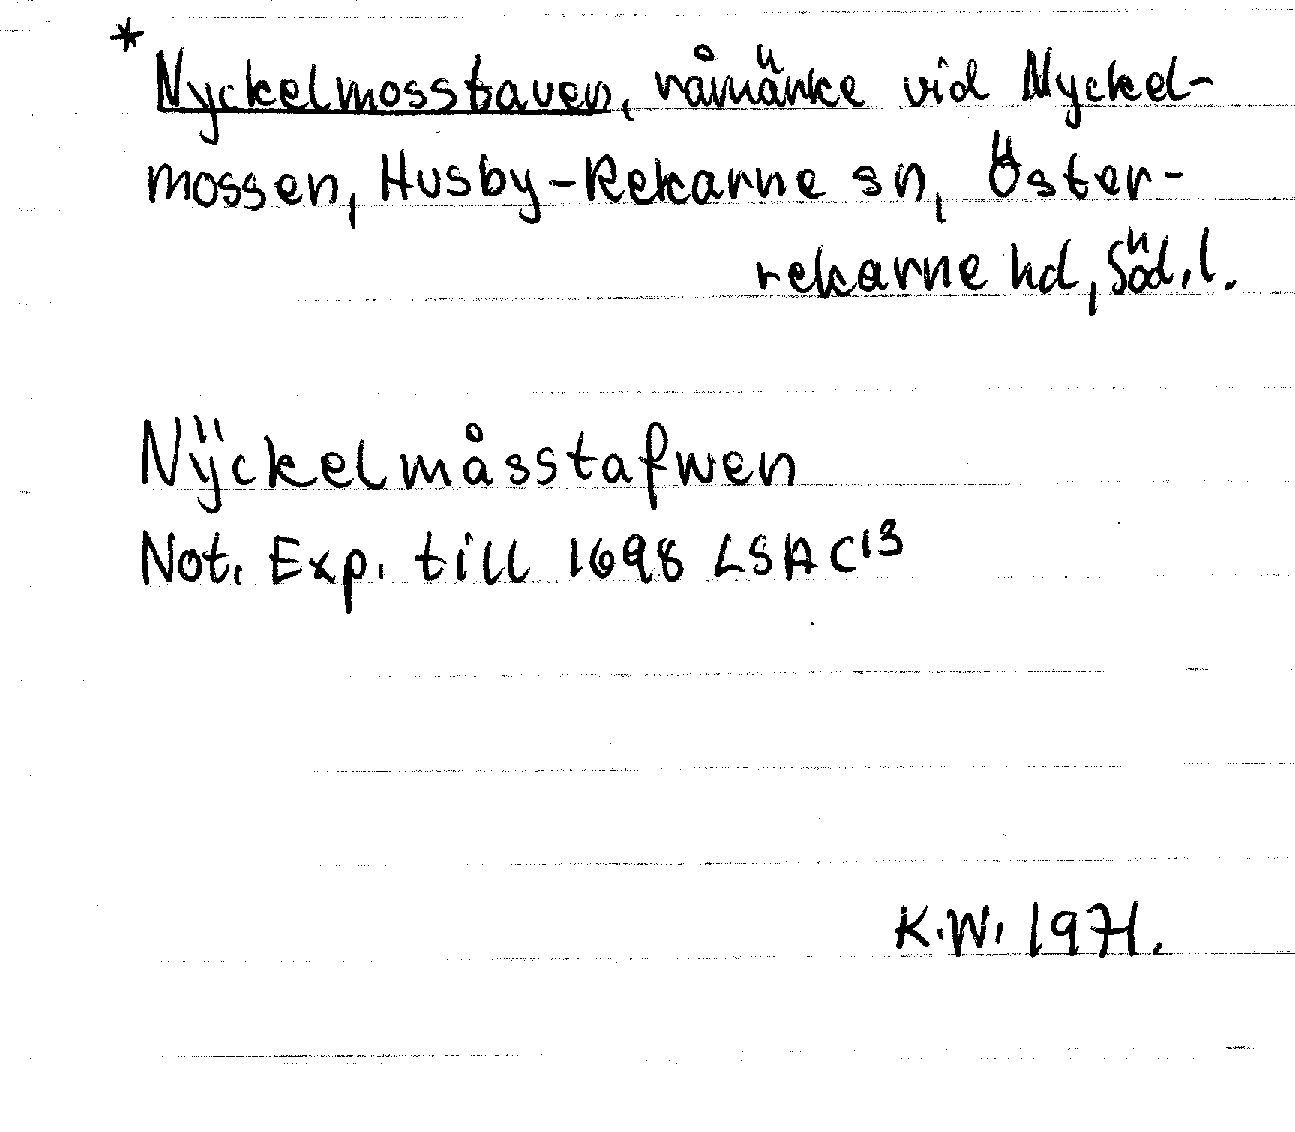 * Nyckelmosstaven, råmärke vid Nyckel-
mossen, Husby-Rekarne sn, Öster-
rekarne hd, Söd.l.
Nÿckelmåsstafwen
Not. Exp. till 1698 LSA C¹³
K.W. 1971.